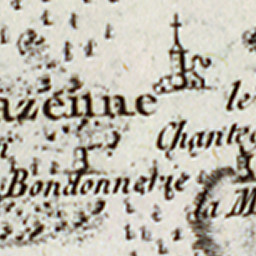 azenne le
Chante
Bondonnerie
la M